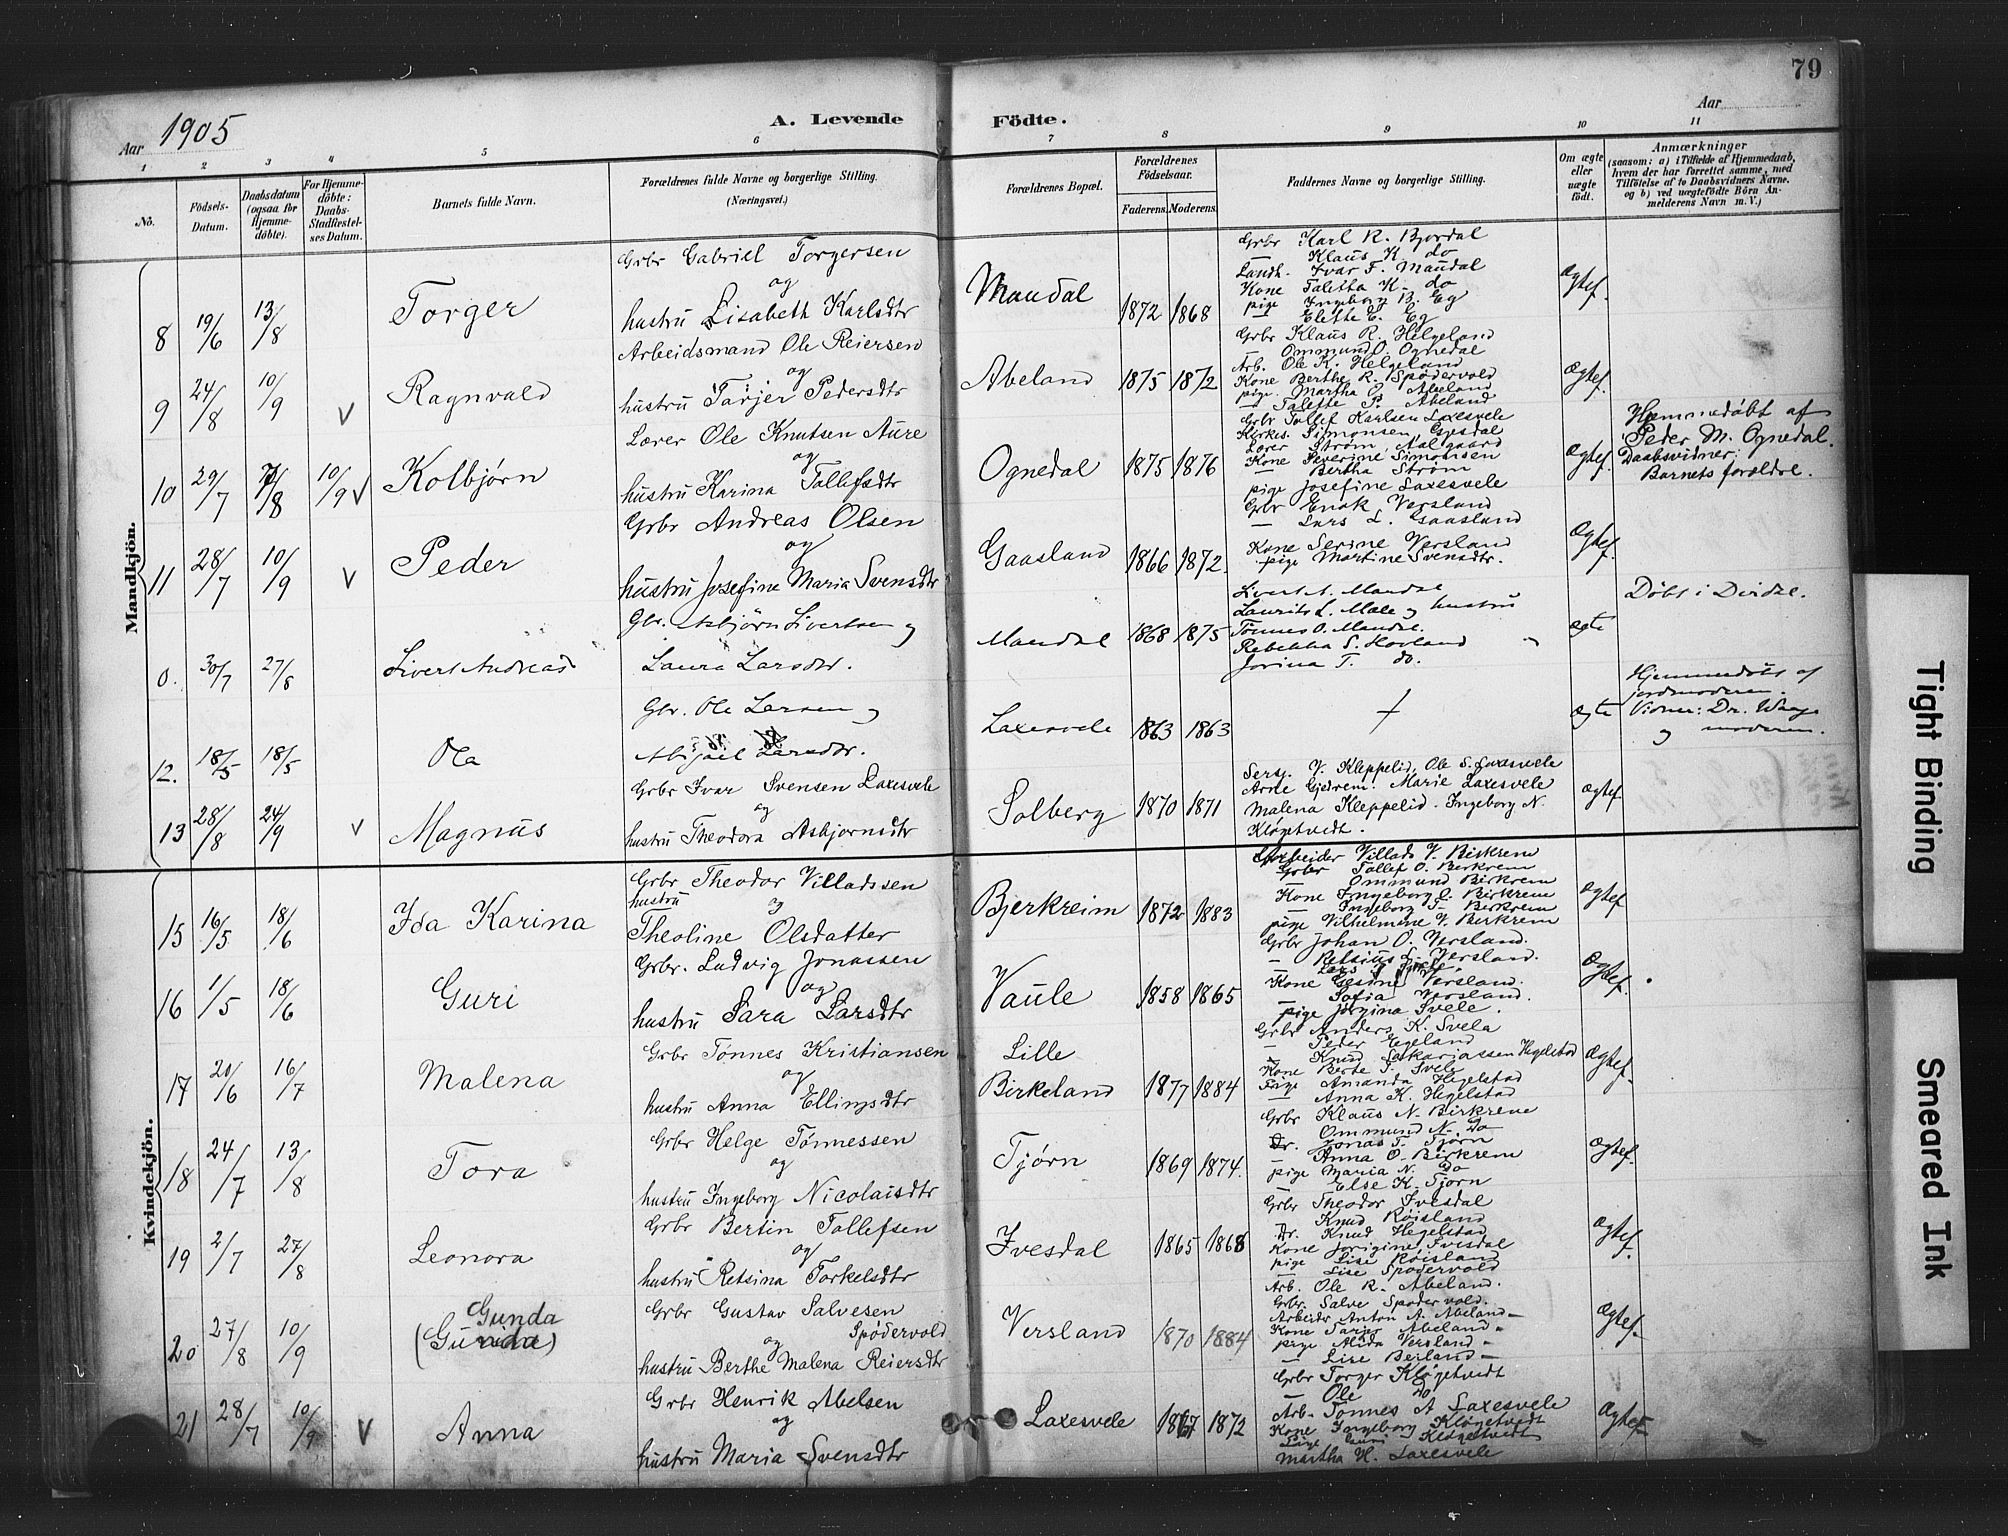 79
Aar 1905
A. Levende Födte.
Aar
1 2 3 4 5 6 7 8 9 10 11
No.
Födsels-Datum.
Daabsdatum (ogsaa for Hjemme-döbte).
For Hjemme-döbte: Daabs-Stadfæstel-ses Datum.
Barnets fulde Navn.
Forældrenes fulde Navne og borgerlige Stilling.
(Næringsvei.)
Forældrenes Bopæl.
Forældrenes Födselsaar.
Faderens. Moderens.
Faddernes Navne og borgerlige Stilling.
Om ægte eller uægte født.
Anmærkninger
(saasom: a) i Tilfælde af Hjemmedaab,
hvem der har forrettet samme, med
Tilföielse af to Daabsvidners Navne.
og b) ved uægtefödte Börn An-
melderens Navn m. V.)
Mandkjön.
8 19/6 13/8 Torger
Grbr Gabriel Torgersen
og
hustru Lisabeth Karlsdtr
Maudal 1872 1868
Grbr Karl R. Bjordal
— Klaus K. do
Landh. Ivar F. Maudal
Kone Taletha K. do
pige Ingeborg B. Eg
— Elefte E. Eg
Ægtef.
9 24/8 10/9 V Ragnvald
Arbeidsmand Ole Reiersen
og
hustru Tarjer Pedersdtr
Abeland 1875 1872
Grbr Klaus R. Helgeland
— Ommund O. Ognedal
Arb. Ole K. Helgeland
Kone Berthe R. Spødervold
pige Martha O. Abeland
— Talette P. Abeland
Ægtef.
10 29/7 7/8 10/9 V Kolbjørn
Lærer Ole Knutsen Aure
og
hustru Karina Tollefsdtr
Ognedal 1875 1876
Grbr Tollef Karlsen Laxesvele
Kirkes. Simonsen Gjesdal
Lærer Strøm Aalgaard
Kone Severine Simonsen
— Bertha Strøm
pige Josefine Laxesvele
Ægtef.
Hjemmedøbt af
Peder M. Ognedal.
Daabsvidner:
Barnets forældre.
11 28/7 10/9 V Peder
Grbr Andreas Olsen
og
hustru Josefine Maria Svensdtr
Gaasland 1866 1872.
Grbr Enok Versland
— Lars L. Gaasland
Kone Serine Versland
pige Martine Svensdtr.
Ægtef.
0. 30/7 27/8 Sivert Andreas
Gbr. Asbjørn Sivertsen og
Laura Larsdtr.
Maudal 1868 1875
Sivert A. Maudal
Laurits L. Mæle og hustru
Tønnes O. Maudal.
Rebekka S. Hovland
Jorina T. do.
ægte
Døbt i Dirdal.
12. 18/5 18/5 Ola
Gbr. Ole Larsen og
Abigael Larsdtr.
Laxesvele 1863 1863
+
ægte
Hjemmedøbt af
jordmoderen.
Vidner: Dr. Waage
og moderen.
13 28/8 24/9 V Magnus
Grbr Ivar Svensen Laxesvele
og
hustru Theodora Asbjørnsdtr
Solberg 1870 1871
Sersj. V. Kleppelid, Ole S. Laxesvele
Arne Gjedrem. Marie Laxesvele
Malena Kleppelid. Ingeborg N.
Kløgetvedt.
Ægtef
Kvindekjön.
15 16/5 18/6 Ida Karina
Grbr Theodor Villadssen
hustru og
Theoline Olsdatter
Bjerkreim 1872 1883
Villads V. Birkrem
Grbr Tollef O. Birkrem
Ommund Birkrem
Kone Ingeborg O. Birkrem
— Ingeborg T. Birkrem
pige Vilhelmine V. Birkrem
Ægtef
16 1/5 18/6 Guri
Grbr. Ludvig Jonassen
og
hustru Sara Larsdtr
Vaule 1858 1865
Grbr Johan O. Versland.
— Retsius L. Versland.
Kone Gesine Versland.
— Sofia Versland.
pige Jørgina Svele.
Ægtef.
17 20/6 16/7 Malena
Grbr Tønnes Kristiansen
og
hustru Anna Ellingsdtr
Lille
Birkeland 1877 1884
Grbr Anders K. Svela
— Peder Egeland
— Knud Sakariassen Hegelstad
Kone Berte S. Svele
Pige Amanda Hegelstad
— Anna K. Hegelstad
Ægtef.
18 24/7 13/8 Tora
Grbr Helge Tønnessen
og
hustru Ingeborg Nicolaisdtr
Tjørn 1869 1874.
Grbr Klaus N. Birkrem
— Ommund N. Do
Dr. Jonas T. Tjørn
— Anna O. Birkrem
pige Maria N. Do
— Else K. Tjørn
Ægtef.
19 2/7 27/8 Leonora
Grbr Bertin Tollefsen
og
hustru Retsina Torkelsdtr
Ivesdal 1865 1868
Grbr Theodor Ivesdal
Knud Røisland
Dr. Knud Hegelstad
Kone Jorigine Ivesdal
pige Lise Røisland
— Lise Spødervold
Ægtef.
20 27/8 10/9 Gunda
(Gunda)
Grbr Gustav Salvesen
og Spødervold
hustru Berthe Malena Reiersdtr
Versland 1870 1884
Arb. Ole R. Abeland.
Grbr. Salve Spødervold.
Arbeidr Anton A. Abeland —
Kone Tarjer Abeland —
pige Alida Versland —
— Lise Berland —
Ægtef.
21 28/7 10/9 V Anna
Grbr Henrik Abelsen
og
hustru Maria Svensdtr
Laxesvele 1867 1872
Grbr Torger Kløgetvedt
— Ole Do
Arb. Tønnes A Laxesvele
Kone Ingeborg Kløgetvedt
Martha H. Laxesvele
Ægtef.
Tight Binding
Smeared Ink